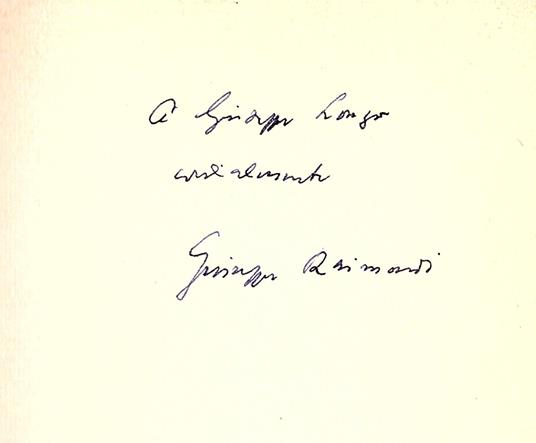 A Giuseppe Longo
cordialmente
Giuseppe Raimondi